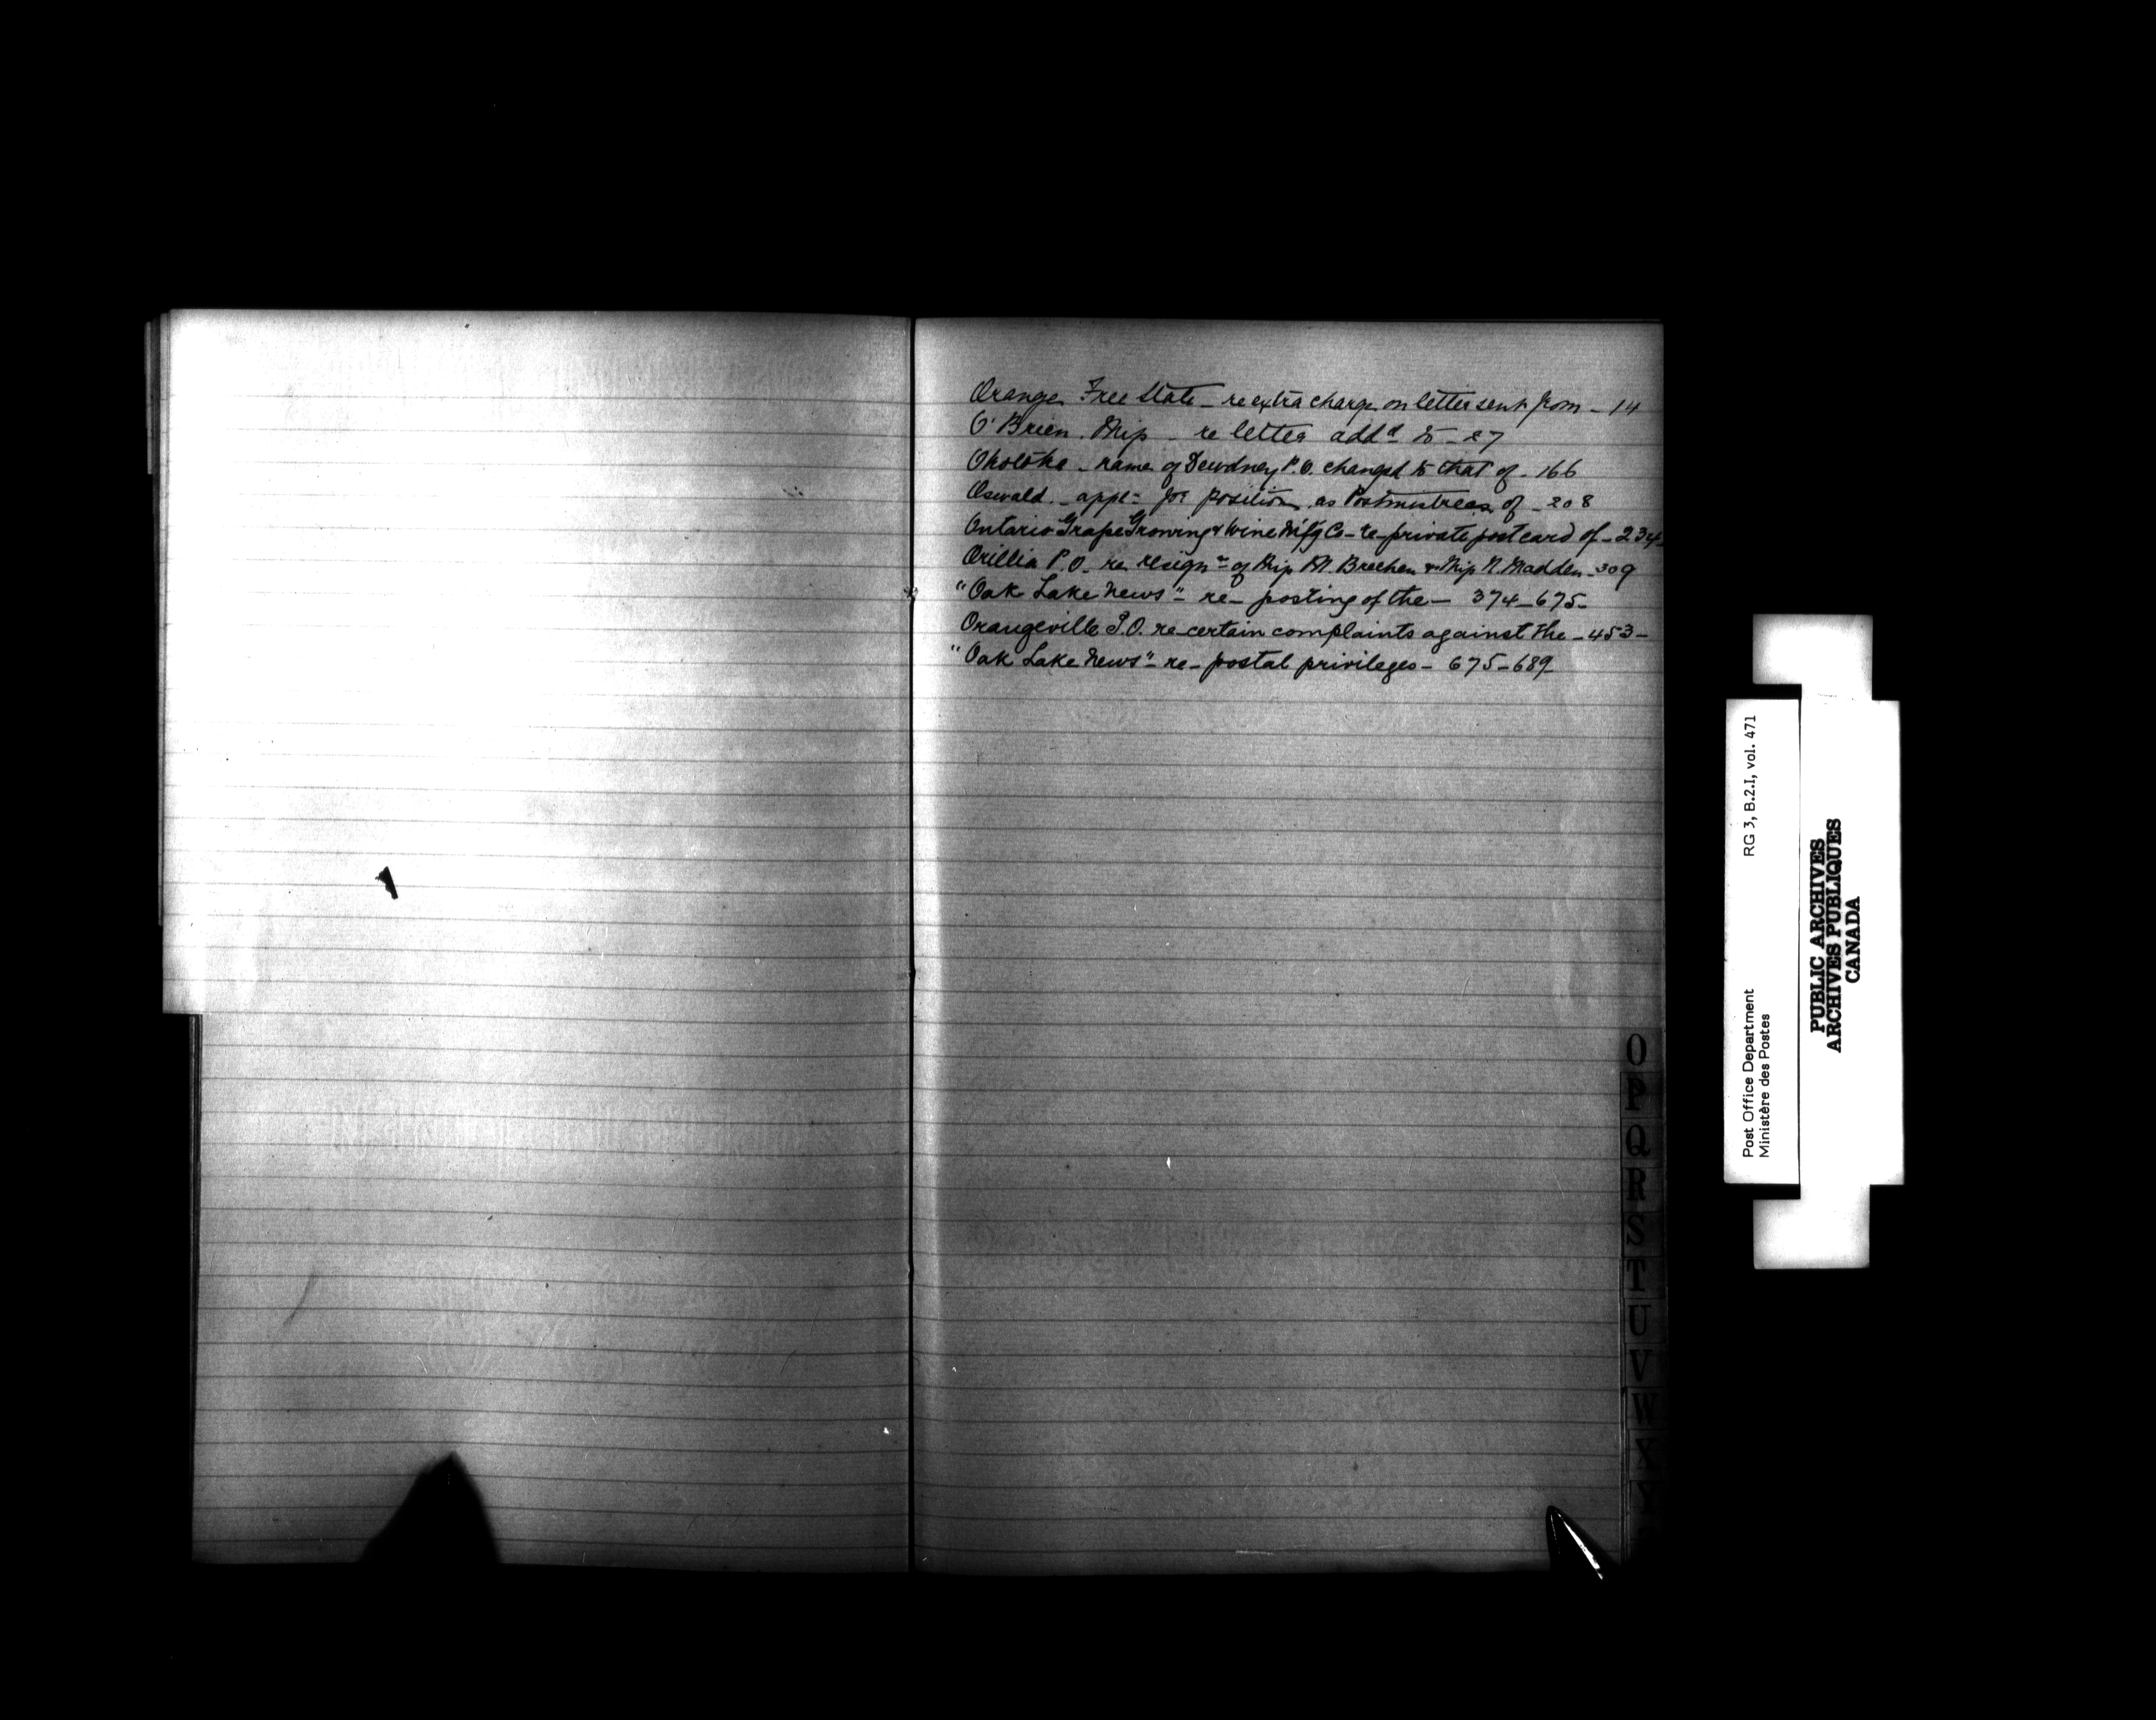 Orange Free State - re extra charge on letter sent from - 14
O'Brien, Miss - re letter add^d to - 27
Okotoks - name of Dewdney P.O. changed to that of - 166
Oswald - appt = for position as Postmistress of - 208
Ontario Grape Growing & Wine M'f'g Co - re - private post card of - 234 -
Orillia P.O. re resign^n of Miss M. & Miss N. Madden - 309
"Oak Lake News" - re - posting of the - 374 - 675 -
Orangeville P.O. re - certain complaints against the - 453 -
"Oak Lake News" - re - postal privileges - 675 - 689 -
O
P
Q
R
S
T
U
V
W
X
Y
Post Office Department RG 3, B.2.I, vol. 471
Ministère des Postes
PUBLIC ARCHIVES
ARCHIVES PUBLIQUES
CANADA